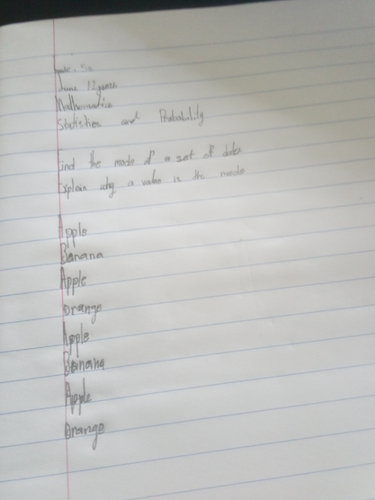 Mathematics
Statistics and Probability
Find the mode of a set of data
Explain why a value is the mode
Apple
Banana
Apple
orange
Apple
Banana
Apple
orange